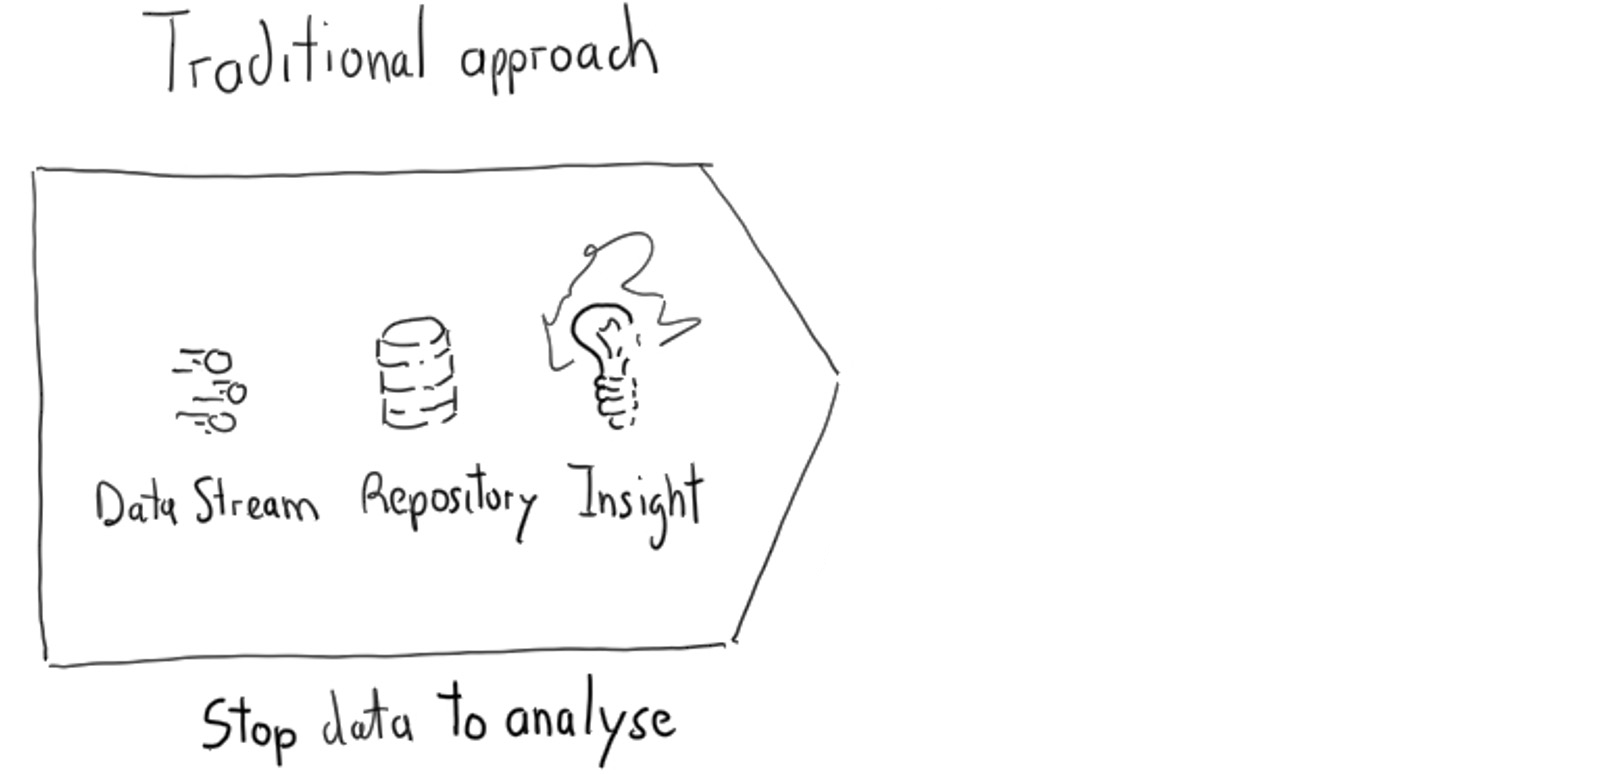 Traditional approach
Data Stream Repository Insight
Stop data to analyse